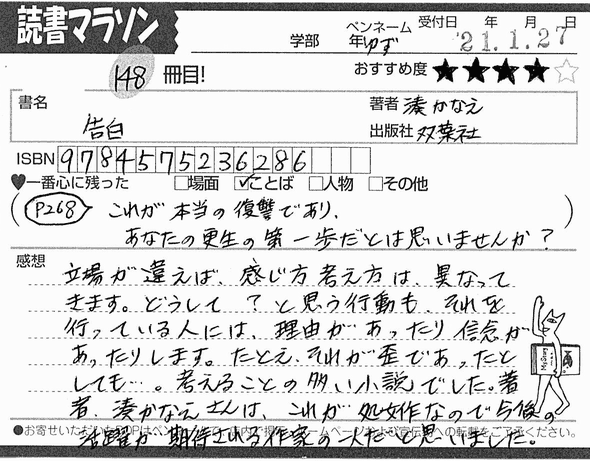 読書マラソン
学部 年
ペンネーム ゆず
受付日 年 月 日
'21.1.27
148 冊目!
おすすめ度 ★★★★☆
書名 告白
著者 湊かなえ
出版社 双葉社
ISBN 9784575236286
♥一番心に残った □場面 ☑ことば □人物 □その他
(P268) これが本当の復讐であり、
あなたの更生の第一歩だとは思いませんか?
感想
立場が違えば、感じ方考え方は、異なって
きます。どうして?と思う行動も、それを
行っている人には、理由があったり信念が
あったりします。たとえ、それが歪であったと
しても…。考えることの多い小説でした。著
者、湊かなえさんは、これが処女作なので今後の
活躍が期待される作家の一人だと思いました。
●お寄せいただいたPOPはペンネームで、店内で掲
ホームページおよび宣伝
への転載をご了承ください。